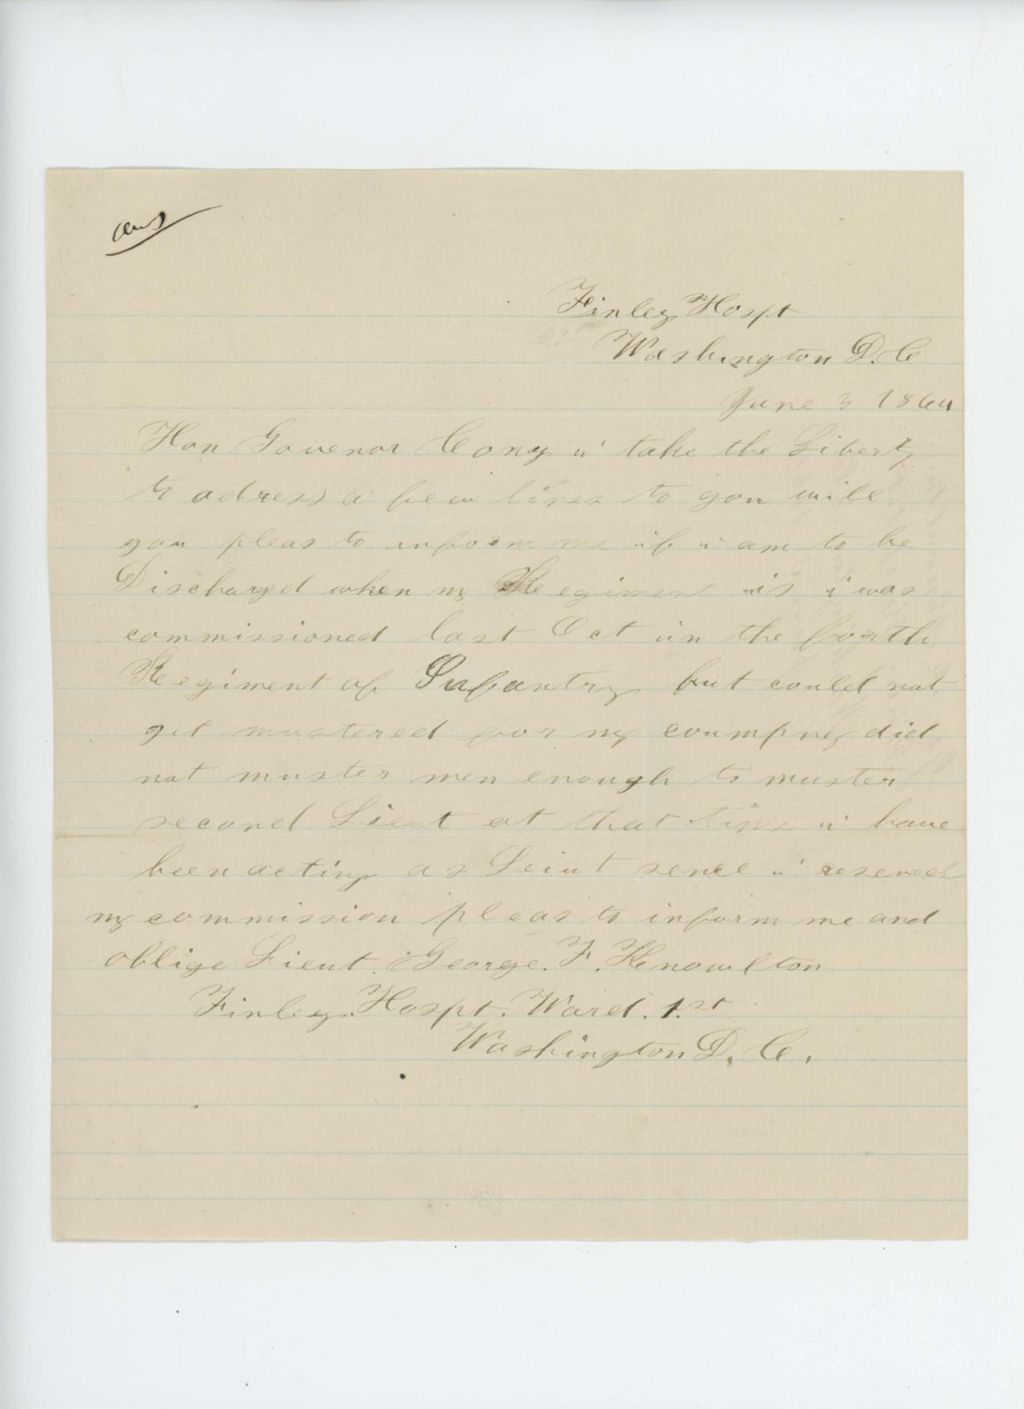 ans
Finley Hospt
Washington D.C
June 3 1864
Hon Govenor Cony i take the Liberty
to adress a few lines to you will
you pleas to inform me if i am to be
Discharged when my Regiment is i was
commissioned last Oct in the fourth
Regiment of Infantry but could not
get mustered for my coumpney did
not muster men enough to muster
second Lieut at that time i have
been acting as Leiut sence i reseved
my commission pleas to inform me and
oblige Lieut. George. F. Knowlton
Finley. Hospt. Ward. 1.st
Washington D. C.